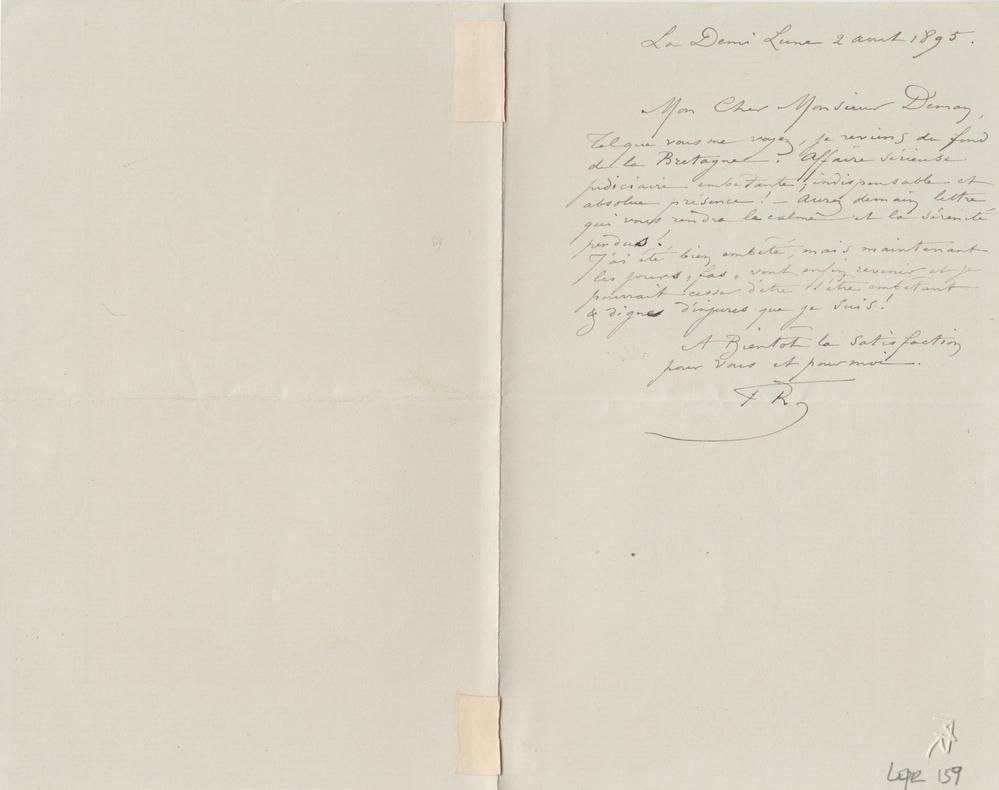 La Demi Lune 2 aout 1895.
Mon Cher Monsieur Deman,
Tel que vous me voyez, je reviens du fond
de la Bretagne! Affaire sérieuse
judiciaire embêtante; indispensable et
absolue présence! – Aurez demain lettre
qui vous rendra le calme et la sérénité
perdus!
J'ai été bien embêté, mais maintenant
les jours, fas, vont enfin revenir et je
pourrait cesser d'être l'être embêtant
& digne d'injures que je suis!
A Bientôt la satisfaction
pour vous et pour moi.
FR
Lepr 159